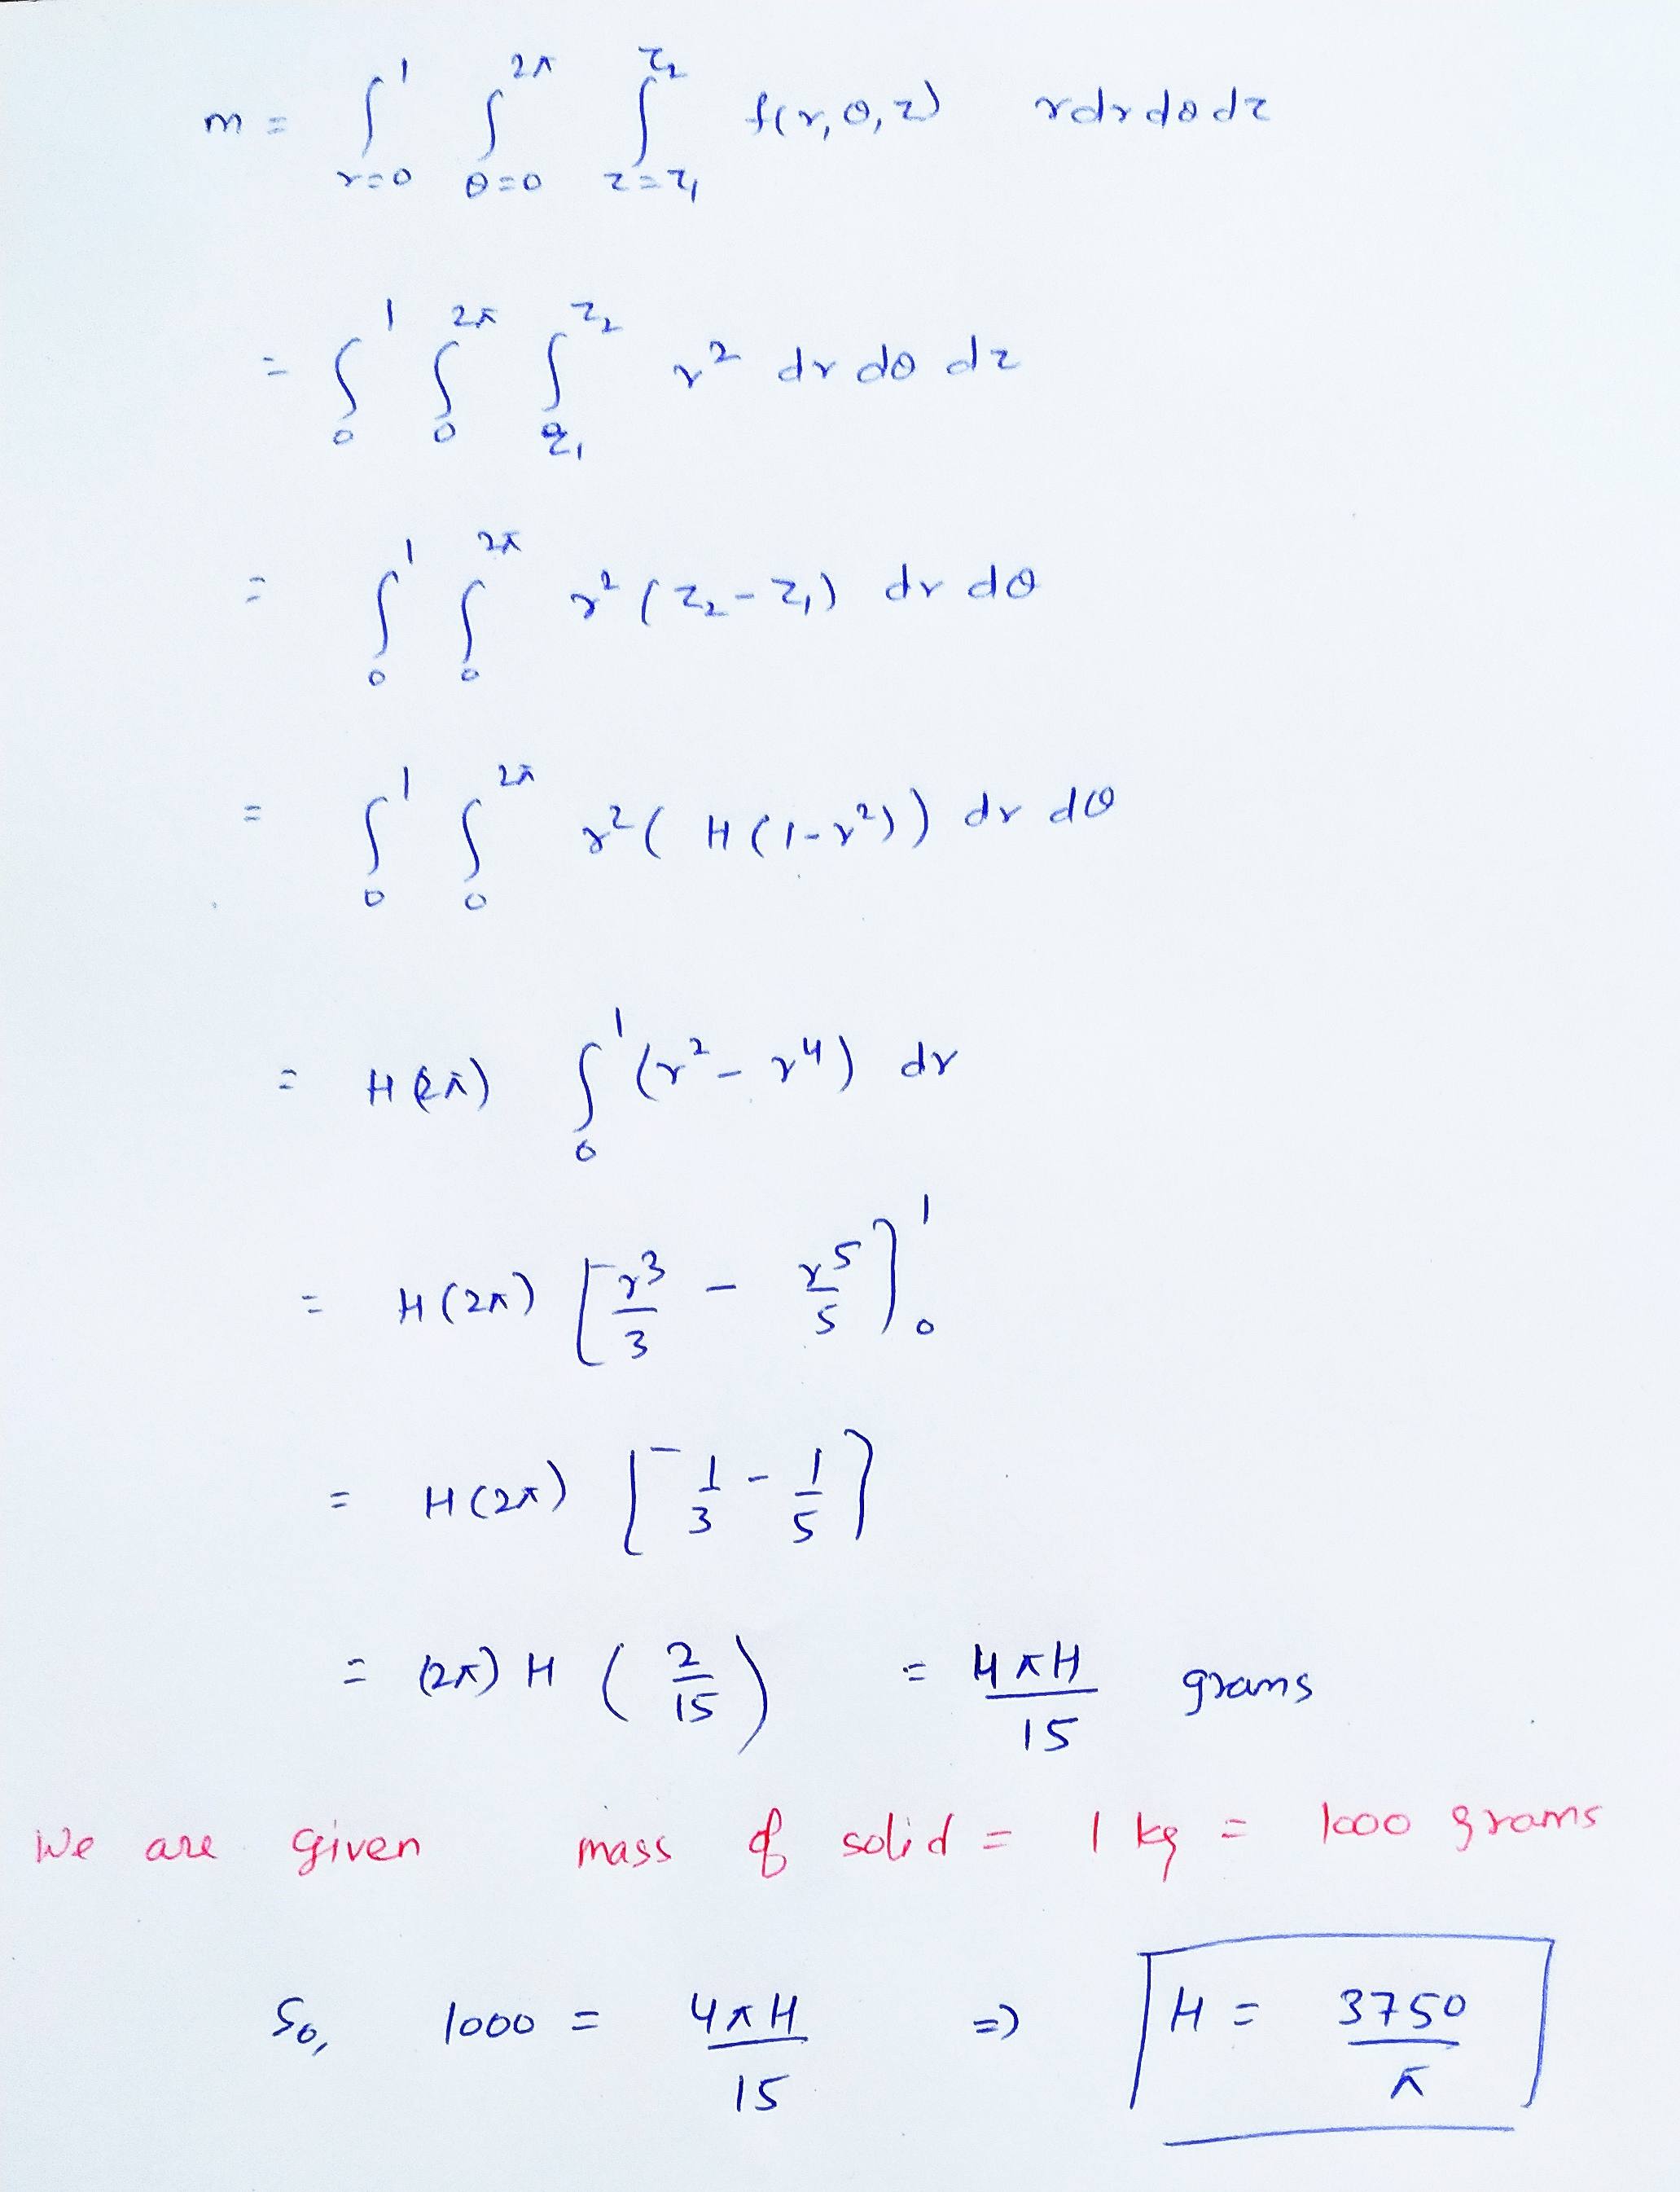 m = ∫_{r=0}^{1} ∫_{θ=0}^{2π} ∫_{z=z₁}^{z₂} f(r,θ,z) r dr dθ dz
= ∫_0^1 ∫_0^{2π} ∫_{z₁}^{z₂} r² dr dθ dz
= ∫_0^1 ∫_0^{2π} r² (z₂ - z₁) dr dθ
= ∫_0^1 ∫_0^{2π} r² ( H (1-r²)) dr dθ
= H (2π) ∫_0^1 (r² - r⁴) dr
= H (2π) [ r³/3 - r⁵/5 ]_0^1
= H (2π) [ 1/3 - 1/5 ]
= (2π) H ( 2/15 ) = 4πH/15 grams
We are given mass of solid = 1 kg = 1000 grams
So, 1000 = 4πH/15 => H = 3750/π